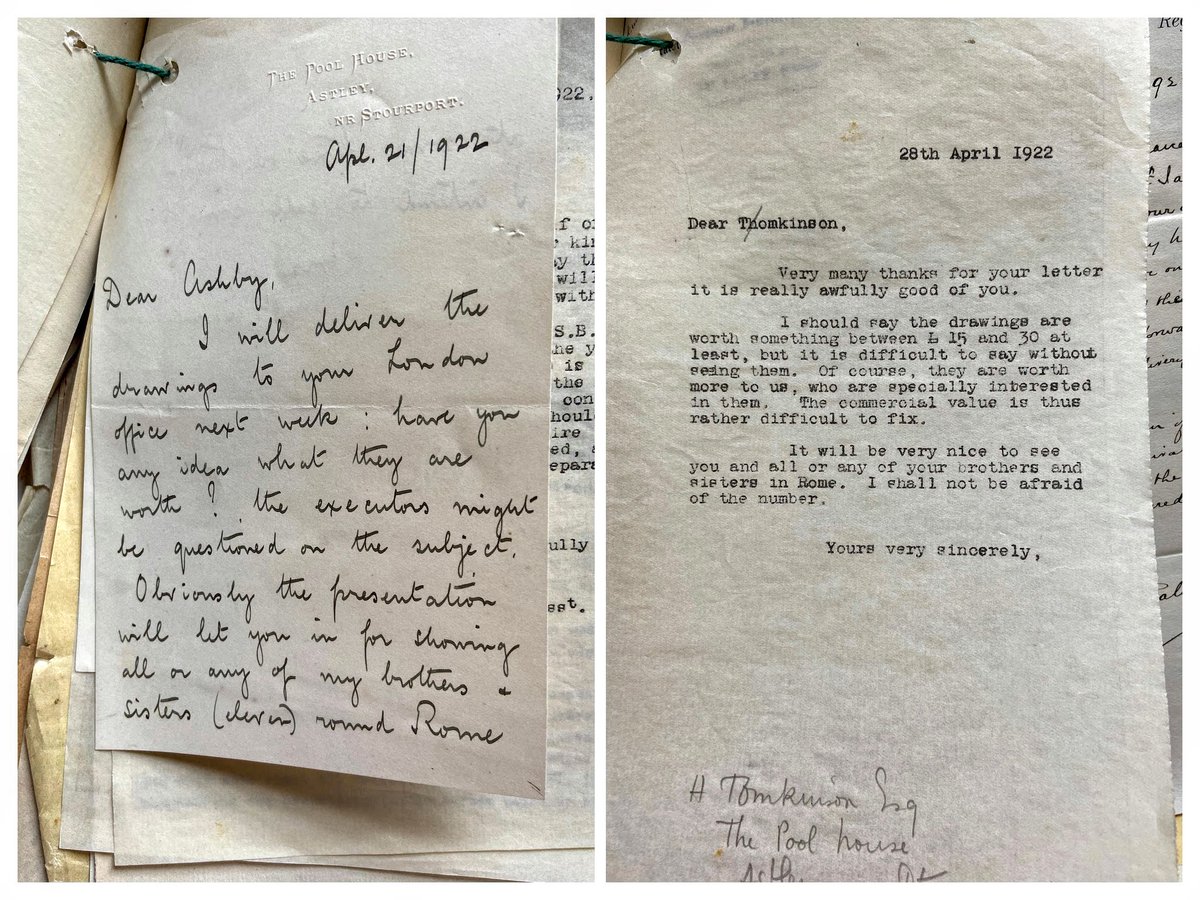 THE POOL HOUSE,
ASTLEY,
NR STOURPORT.
Apl. 21/1922
Dear Ashby,
I will deliver the
drawings to your London
office next week : have you
any idea what they are
worth ? the executors might
be questioned on the subject.
Obviously the presentation
will let you in for showing
all or any of my brothers +
sisters (eleven) round Rome
922.
S.B.
28th April 1922
Dear Thomkinson,
Very many thanks for your letter
it is really awfully good of you.
I should say the drawings are
worth something between £ 15 and 30 at
least, but it is difficult to say without
seing them. Of course, they are worth
more to us, who are specially interested
in them. The commercial value is thus
rather difficult to fix.
It will be very nice to see
you and all or any of your brothers and
sisters in Rome. I shall not be afraid
of the number.
Yours very sincerely,
H Tomkinson Esq
The Pool house